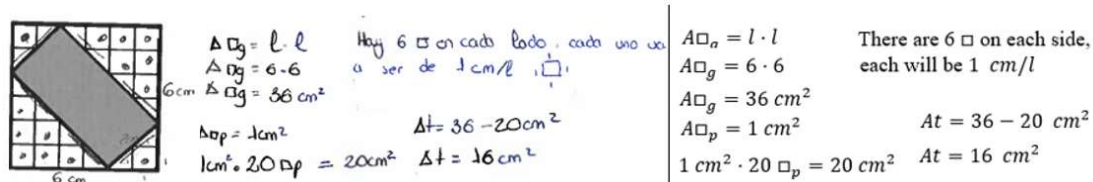 6 cm
6 cm
A □g = l · l
A □g = 6 · 6
A □g = 36 cm²
A□p = 1cm²
1cm² · 20 □p = 20cm²
Hay 6 □ en cada lado, cada uno va
a ser de 1 cm/l
At = 36 - 20cm²
At = 16 cm²
A□ₐ = l · l
A□g = 6 · 6
A□g = 36 cm²
A□p = 1 cm²
1 cm² · 20 □p = 20 cm²
There are 6 □ on each side,
each will be 1 cm/l
At = 36 − 20 cm²
At = 16 cm²